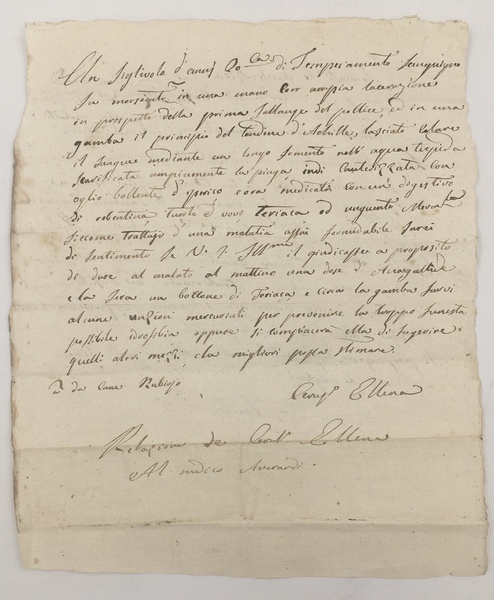 Un figlivolo d'anni 20 ca di Temperamento sanguigno
fu morsicato a in una mano con ampia lacerazione
in prospetto della prima fallange del pollice, ed in una
gamba il principio del tendine d'Achille, lasciato colare
il sangue mediante un longo fomento nell'acqua tiepida
scarificata ampiamente la piaga indi cauterizzata con
oglio bollente d'iperico e ora medicata con un digestivo
di trebentina tuorlo d'vovo teriaca ed unguento
siccome trattasi d'una malatia assai formidabile sarei
di sentimento se V. S. Ill.ma il giudicasse a proposito
di dare al malato al mattino una dose d'
e la sera un bollone di Toriaca e circa la gamba farvi
alcune unzioni mercuriali per prevenire la troppo funesta
possibile idrofobia oppure si compiacerà ella di sugerire
quelli altri mezzi, che migliori possa stimare.
a da cane Rabioso
Ellena
Relazione de Ellena
Al medico